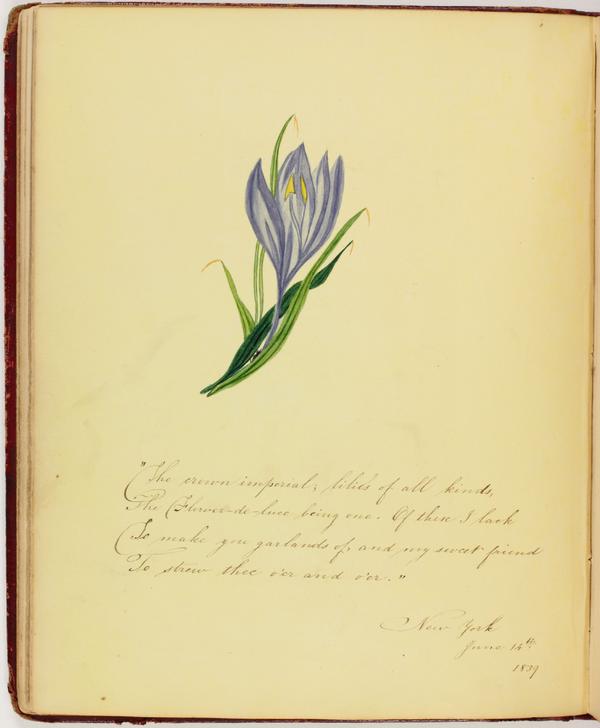 "The crown imperial; lilies of all kinds,
The Flower-de-luce being one. Of these I lack
To make you garlands of, and my sweet friend
To strew thee o'er and o'er."
New York
June 14th
1839